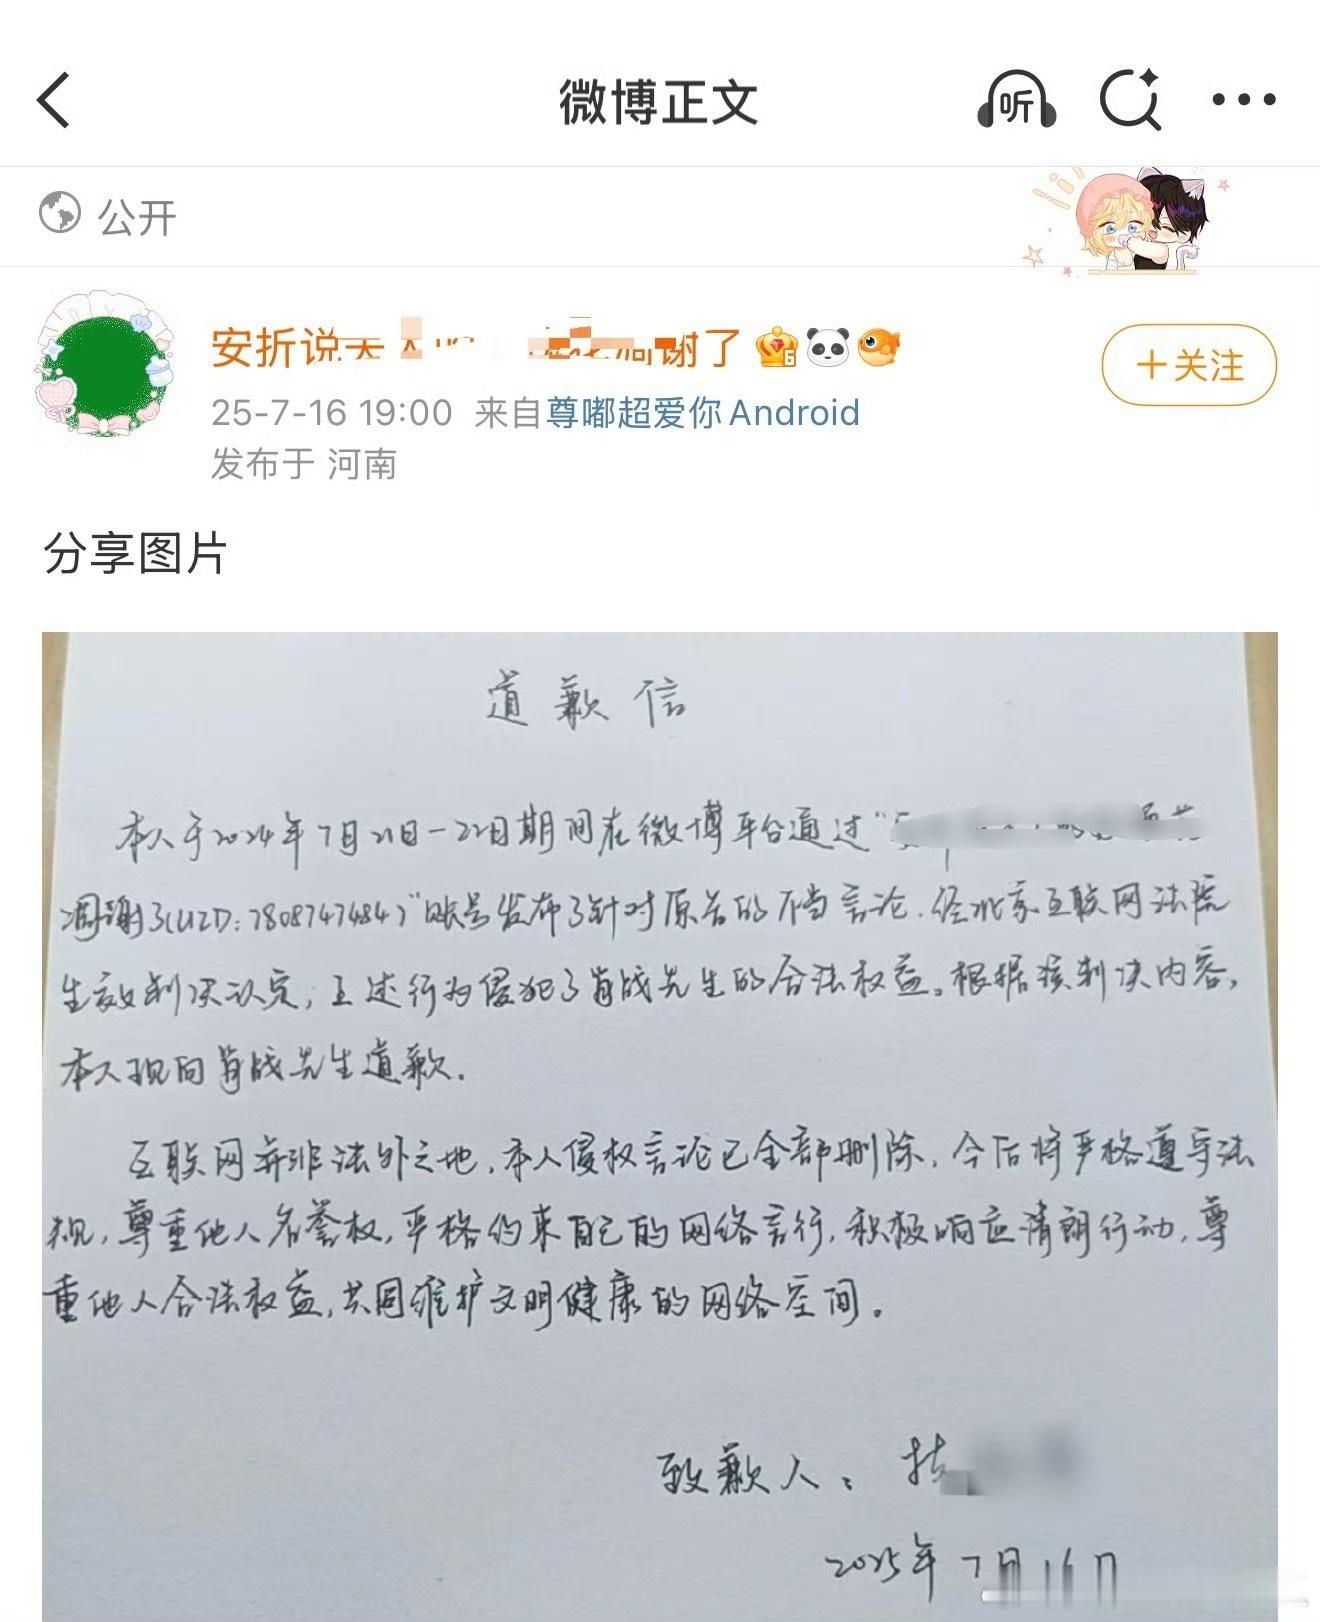 微博正文
听
公开
安折说
谢了
6
+关注
25-7-16 19:00 来自尊嘟超爱你Android
发布于 河南
分享图片
道歉信
本人于2024年7月21日-22日期间在微博平台通过"
凋谢了(UID:7808747484)"账号发布了针对原告的不当言论.经北京互联网法院
生效判决认定,上述行为侵犯了肖战先生的合法权益。根据该判决内容,
本人现向肖战先生道歉.
互联网并非法外之地,本人侵权言论已全部删除,今后将严格遵守法
规,尊重他人名誉权,严格约束自己的网络言行,积极响应清朗行动,尊
重他人合法权益,共同维护文明健康的网络空间。
致歉人:
2025年7月16日